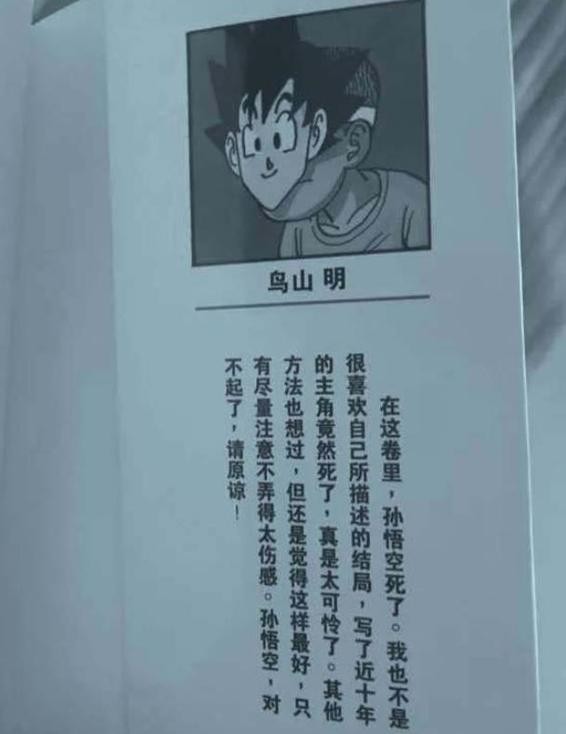 鸟山 明
在这卷里，孙悟空死了。我也不是
很喜欢自己所描述的结局，写了近十年
的主角竟然死了，真是太可怜了。其他
方法也想过，但还是觉得这样最好，只
有尽量注意不弄得太伤感。孙悟空，对
不起了，请原谅！